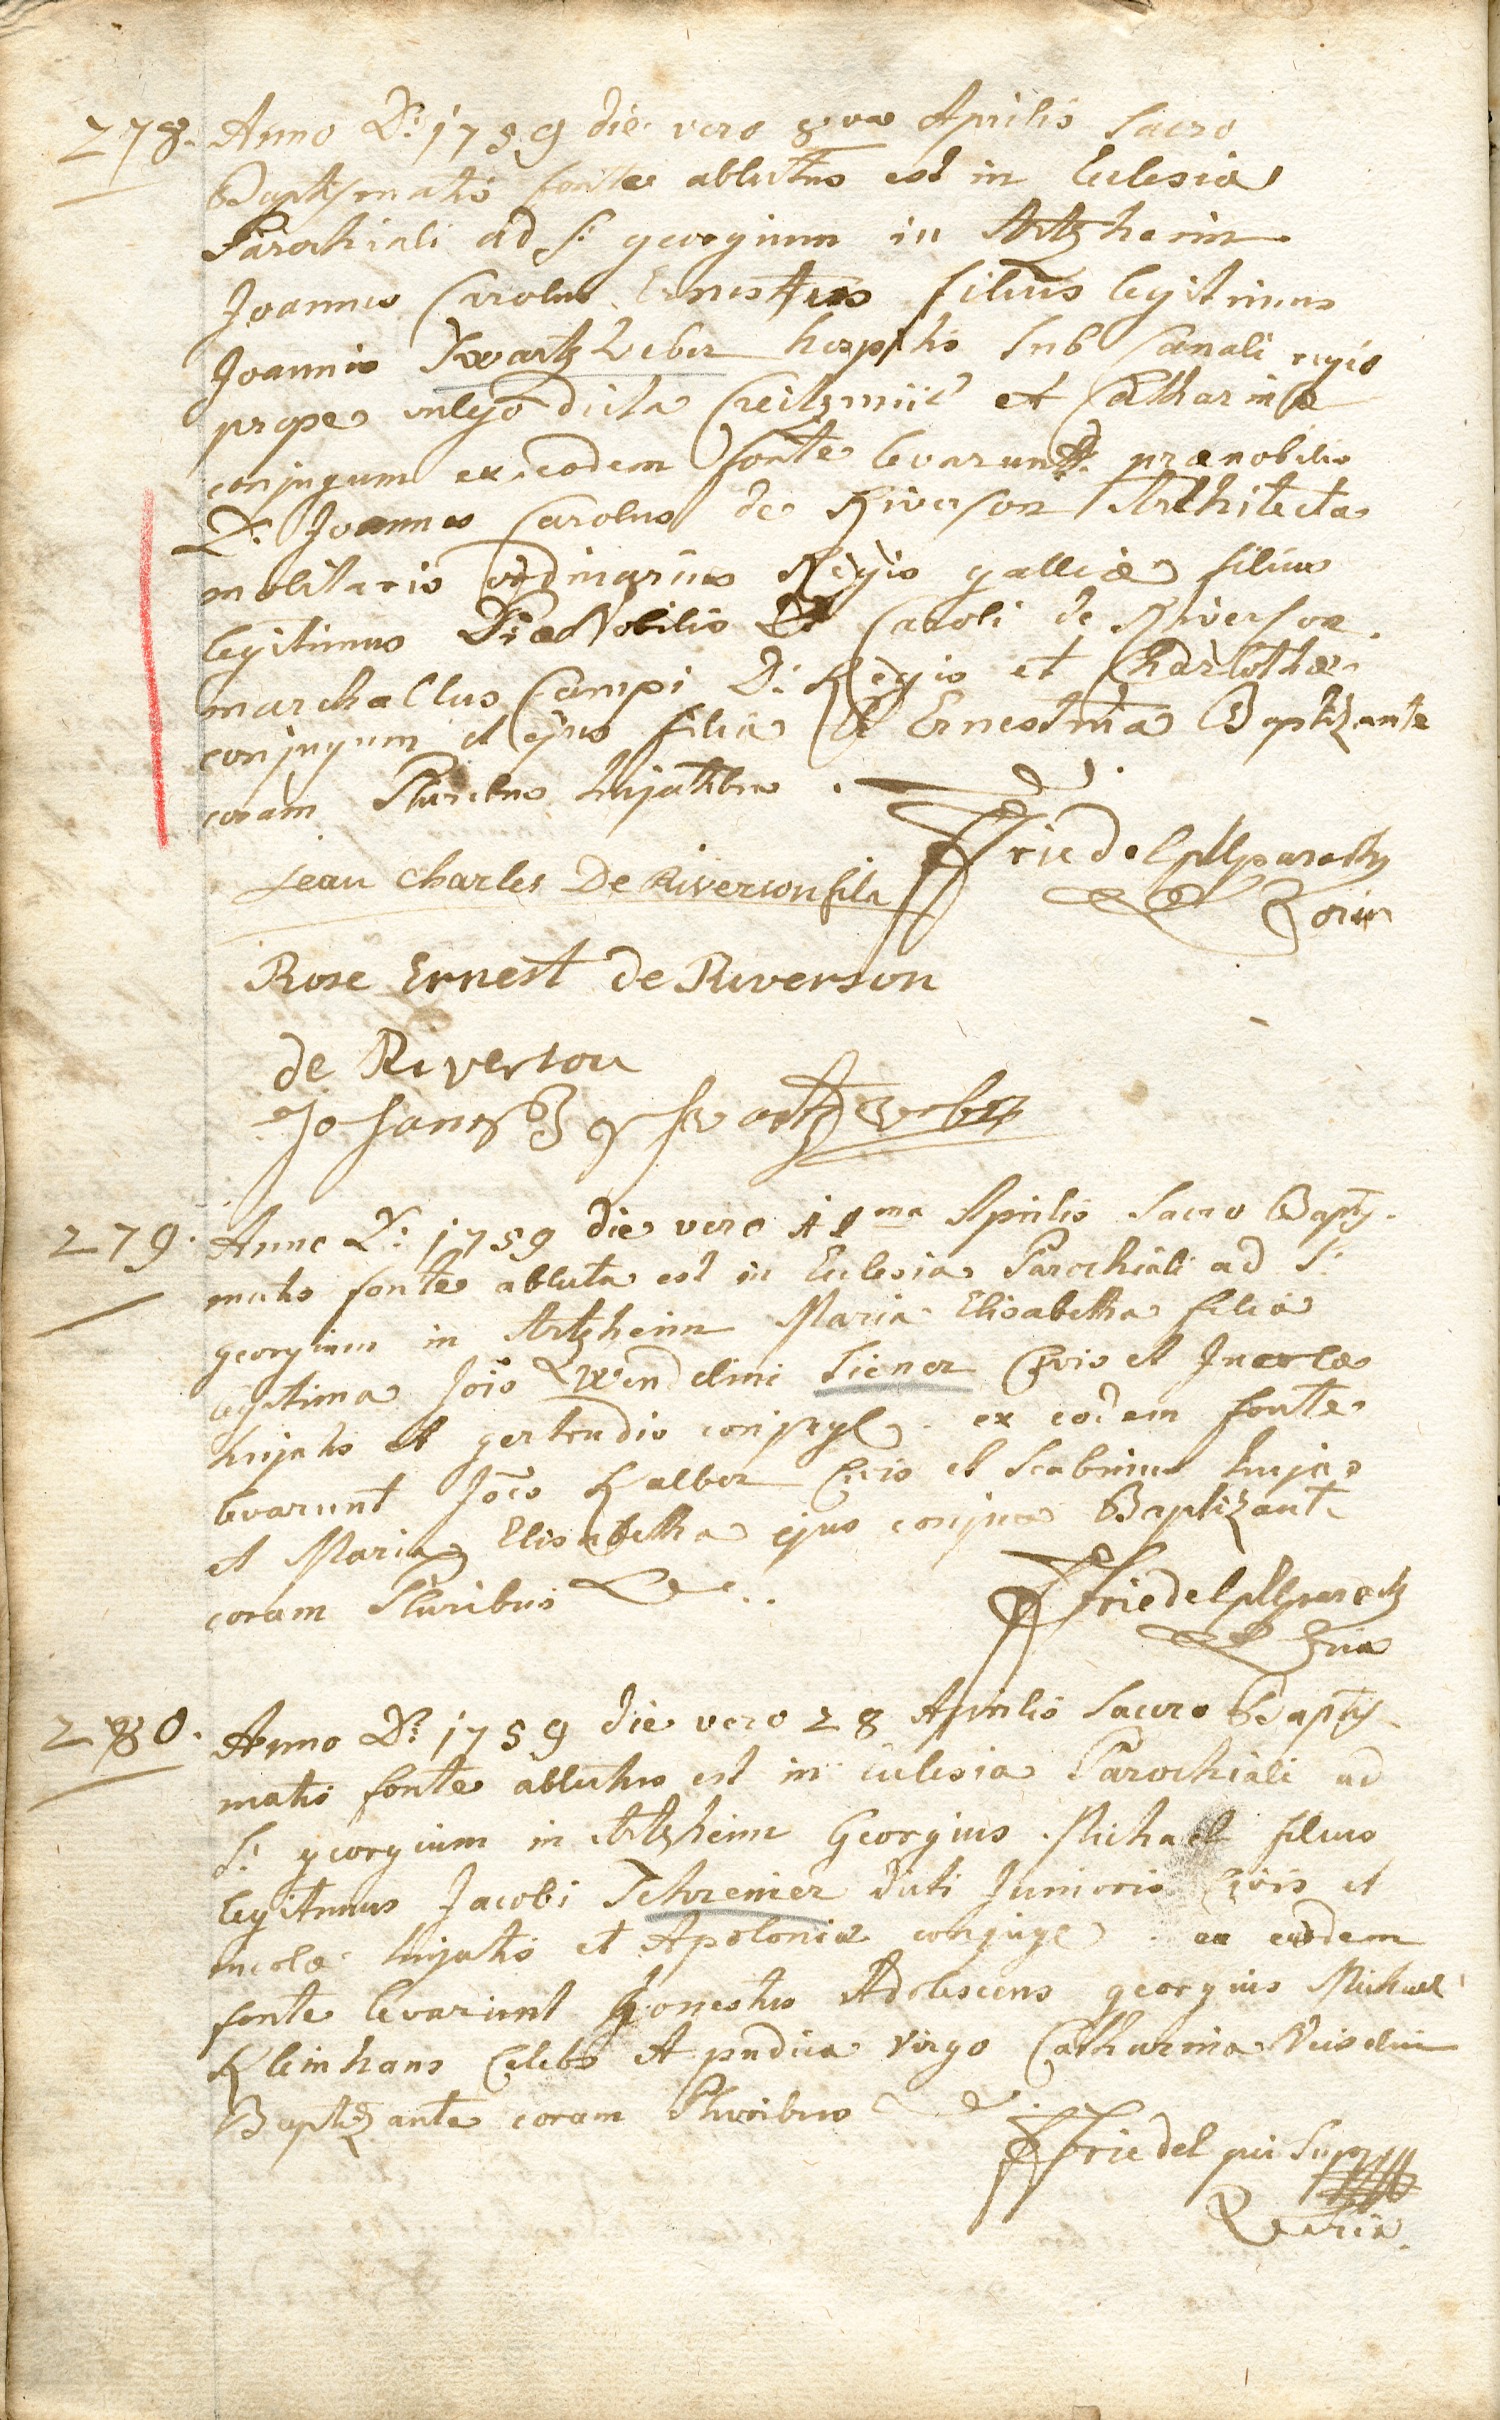 278. Anno D: 1759 die vero 8va Aprilis Sacro
Baptismatis fonte ablutus est in Eclesia
Parochiali ad S: georgium in Artzheim
Joannes Carolus Ernestus filius legitimus
Joannis Swartzweber hospitis sub Canali regio
prope vulgo dicta et Catharinæ
conjugum ex eodem fonte levarunt prænobilis
D: Joannes Carolus de Riverson Architecta
militaris ordinarius Regis galliæ filius
legitimus PræNobilis D: Caroli de Riverson
marchallus Campi D: Regis et Charlothæ
conjugum et ejus filia Ernestina Baptizante
coram Pluribus hujatibus.
Friedel
Jean Charles De Riverson fils
Rose Ernest de Riverson
de Riverson
279. Anno D: 1759 die vero 11ma Aprilis Sacro Bapty-
matis fonte abluta est in Eclesia Parochiali ad S:
georgium in Artzheim Maria Elisabetha filia
legitima Jois Wendelini Siener Civis et Incolæ
hujatis et gertrudis conjug ex eodem fonte
levarunt Joes Kalber Civis et Scabinus hujas
et Maria Elisabetha ejus conjux Baptizante
coram Pluribus
Friedel
280. Anno D: 1759 die vero 28 Aprilis Sacro Bapty-
matis fonte ablutus est in Eclesia Parochiali ad
S: georgium in Artzheim Georgius Michael filius
legitimus Jacobi Schreiner dicti Junioris Civis et
incolæ hujatis et Apoloniæ conjuge ex eodem
fonte levarunt honestus Adolescens georgius Michael
Kleinhans Celebs et pudica virgo Catharina
Baptizante coram Pluribus
Friedel qui Supr